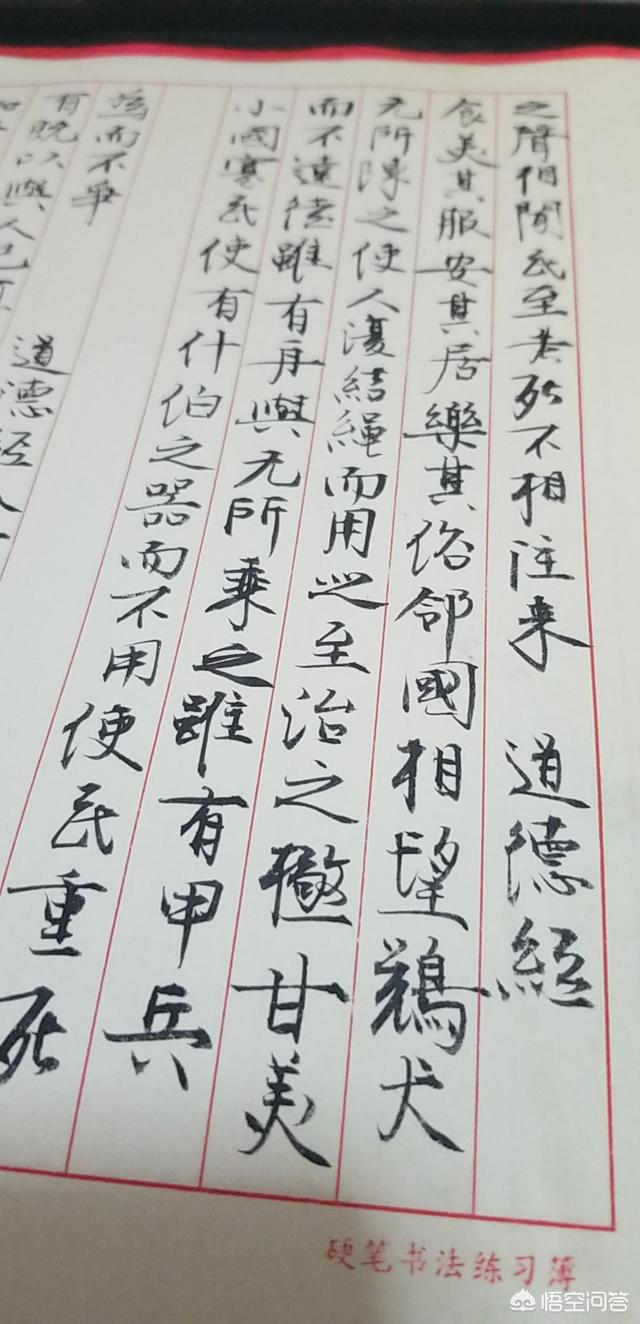 有既以與人己
為而不争 道德經
小國寡民使有什伯之器而不用使民重死
而不遠徙雖有舟與无所乗之雖有甲兵
无所陳之使人復結繩而用之至治之極甘美
食美其服安其居樂其俗鄰國相望鷄犬
之聲相聞民至老死不相往来 道德經
硬笔书法练习簿
悟空问答